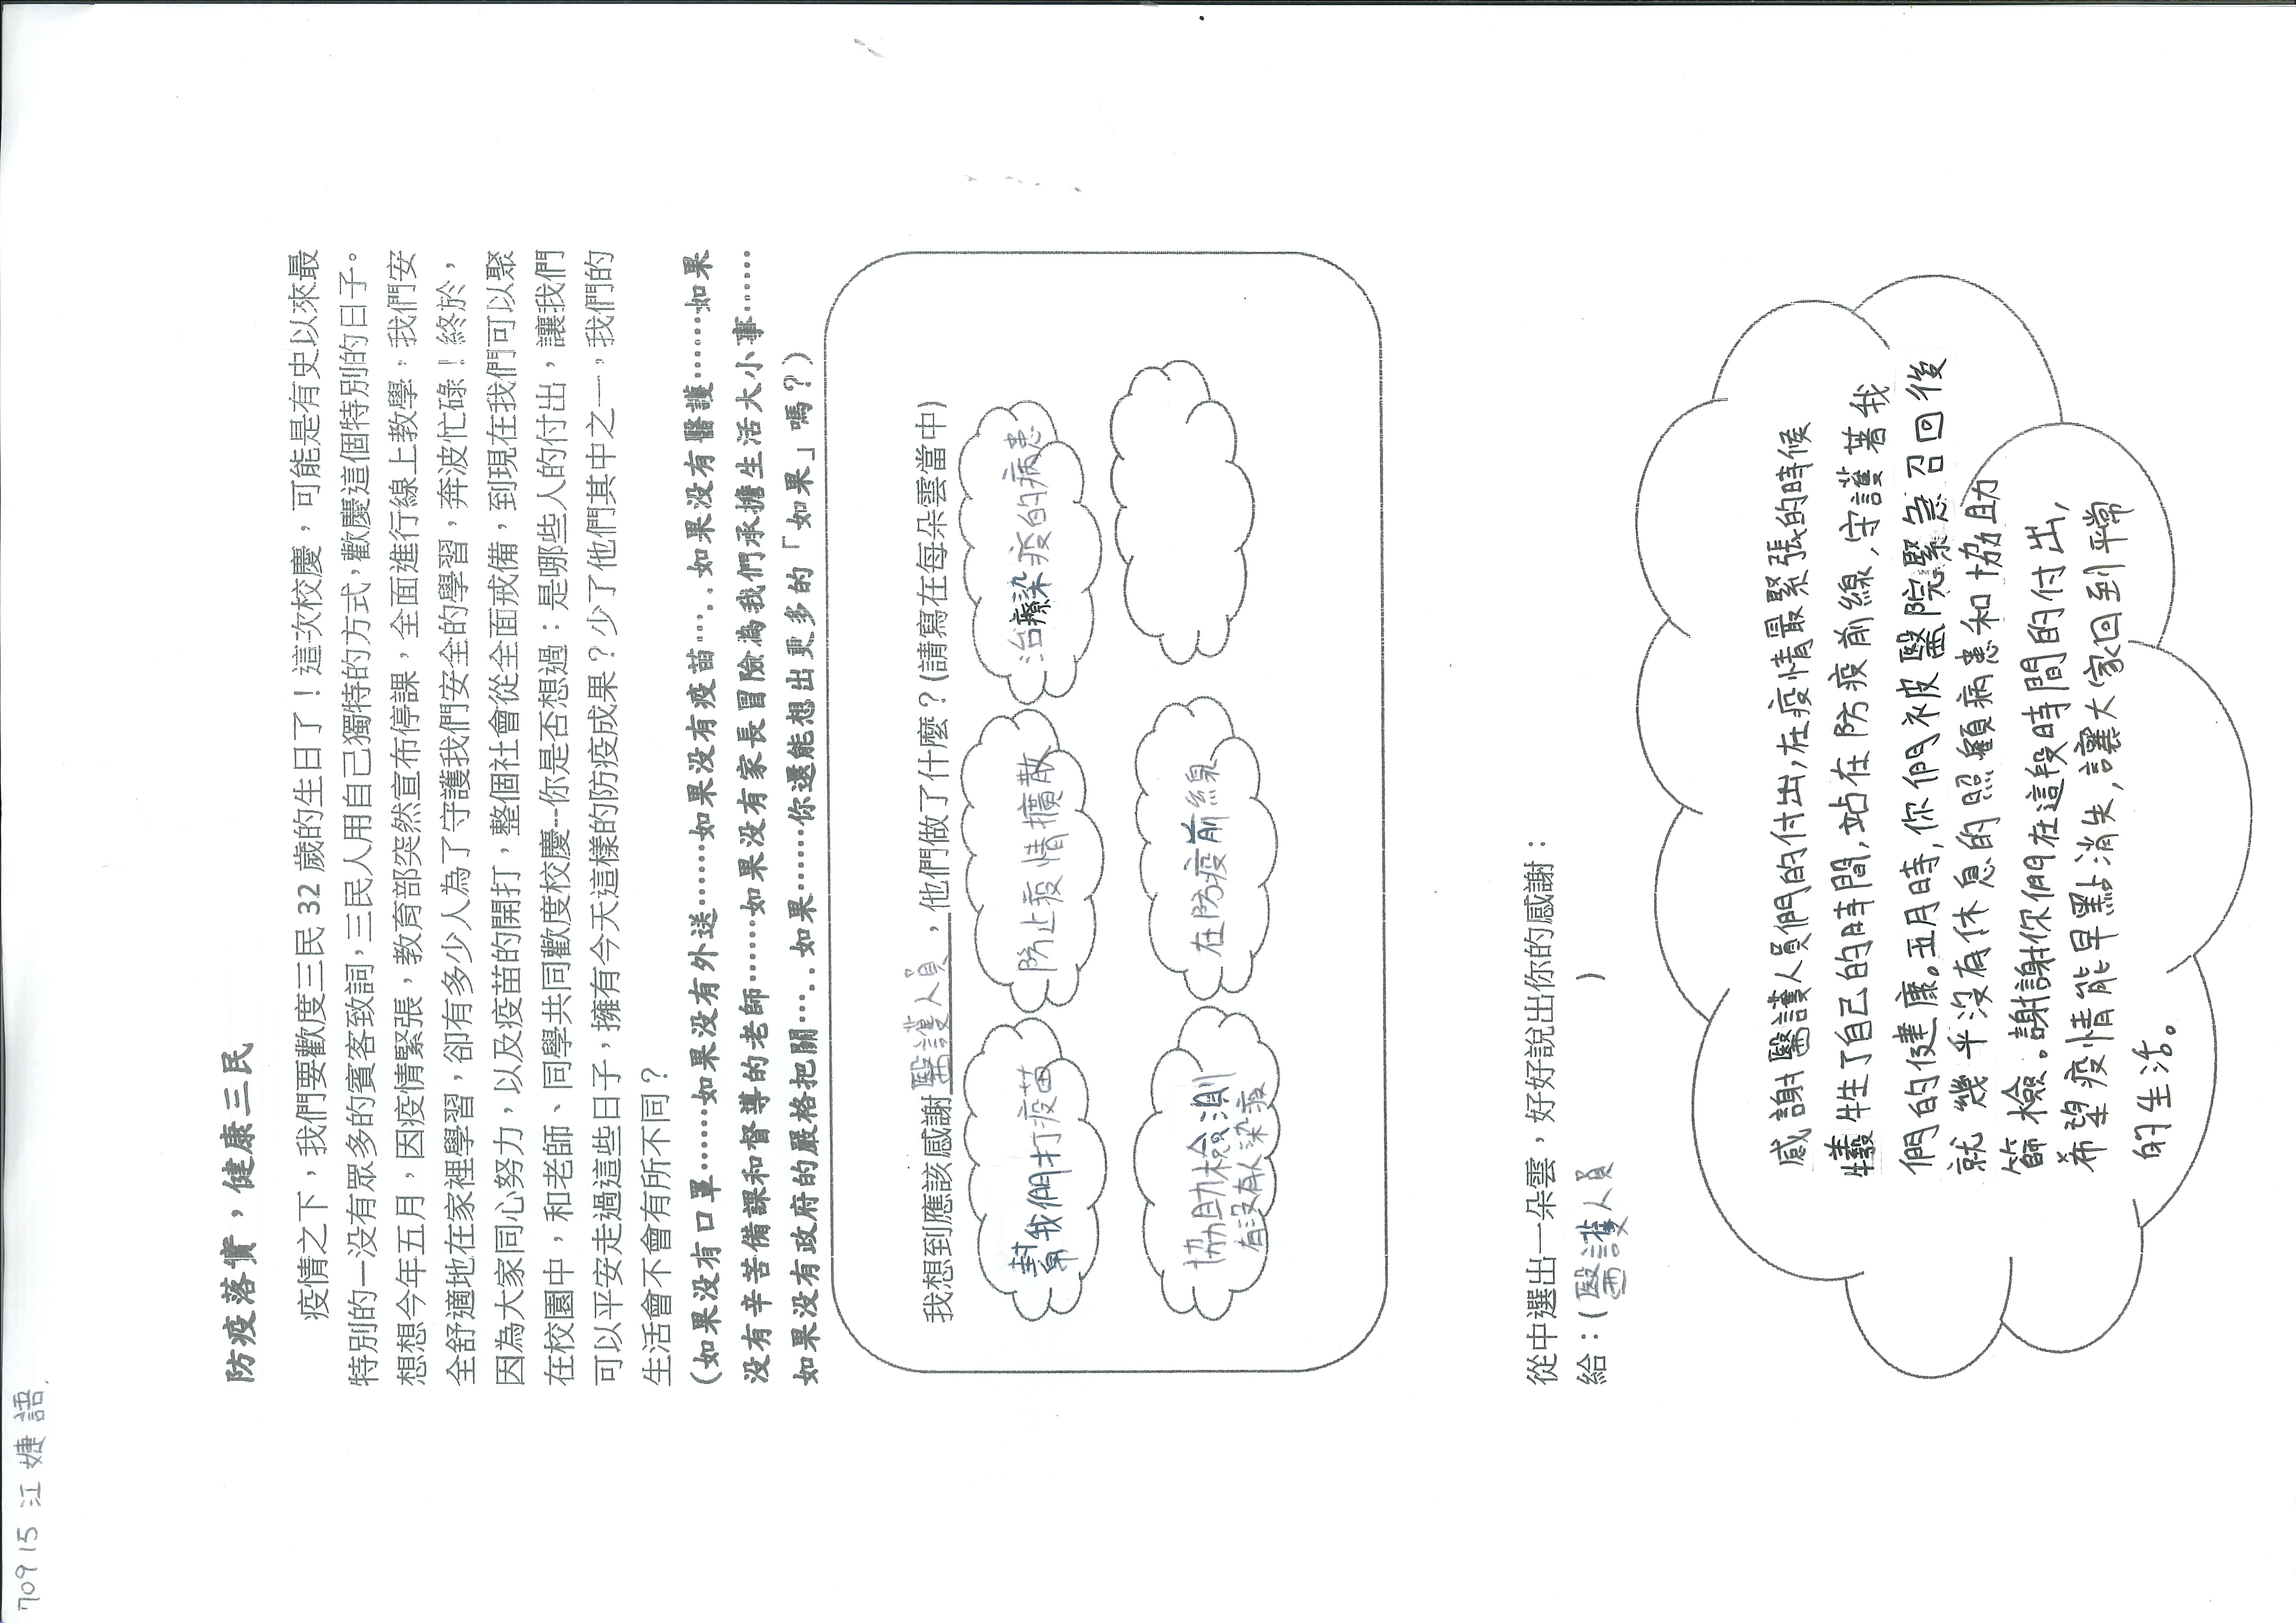 70915 江婕語
防疫落實，健康三民
疫情之下，我們要歡度三民 32 歲的生日了！這次校慶，可能是有史以來最
特別的一沒有眾多的賓客致詞，三民人用自己獨特的方式，歡慶這個特別的日子。
想想今年五月，因疫情緊張，教育部突然宣布停課，全面進行線上教學，我們安
全舒適地在家裡學習，卻有多少人為了守護我們安全的學習，奔波忙碌！終於，
因為大家同心努力，以及疫苗的開打，整個社會從全面戒備，到現在我們可以聚
在校園中，和老師、同學共同歡度校慶--你是否想過：是哪些人的付出，讓我們
可以平安走過這些日子，擁有今天這樣的防疫成果？少了他們其中之一，我們的
生活會不會有所不同？
(如果沒有口罩……如果沒有外送……如果沒有疫苗…..如果沒有醫護……如果
沒有辛苦備課和督導的老師……如果沒有家長冒險為我們承擔生活大小事……
如果沒有政府的嚴格把關…..如果……你還能想出更多的「如果」嗎？)
我想到應該感謝醫護人員，他們做了什麼？(請寫在每朵雲當中)
幫我們打疫苗
防止疫情擴散
治療染疫的病患
協助檢測
有沒有人染疫
在防疫前線
從中選出一朵雲，好好說出你的感謝：
給：(醫護人員)
感謝醫護人員們的付出,在疫情最緊張的時候
犧牲了自己的時間,站在防疫前線,守護著我
們的健康。五月時,你們被醫院緊急召回後
就幾乎沒有休息的照顧病患和協助
篩檢。謝謝你們在這段時間的付出,
希望疫情能早點消失,讓大家回到平常
的生活。